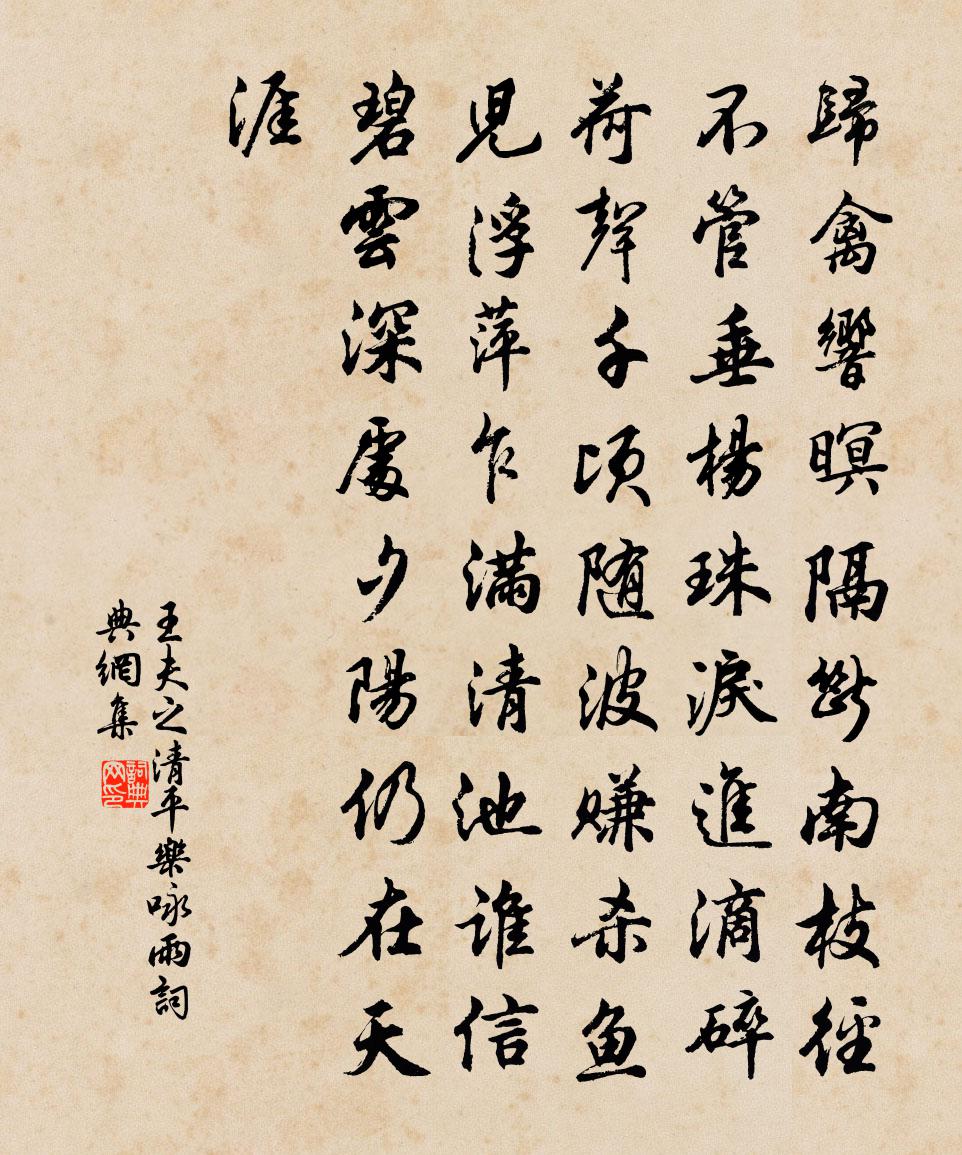 歸禽響暝隔斷南枝徑
不管垂楊珠淚進滴碎
荷聲千頃随波賺杀鱼
兒浮萍乍滿清池谁信
碧雲深處夕陽仍在天
涯
王夫之清平樂咏雨詞
典網集
詞典网印